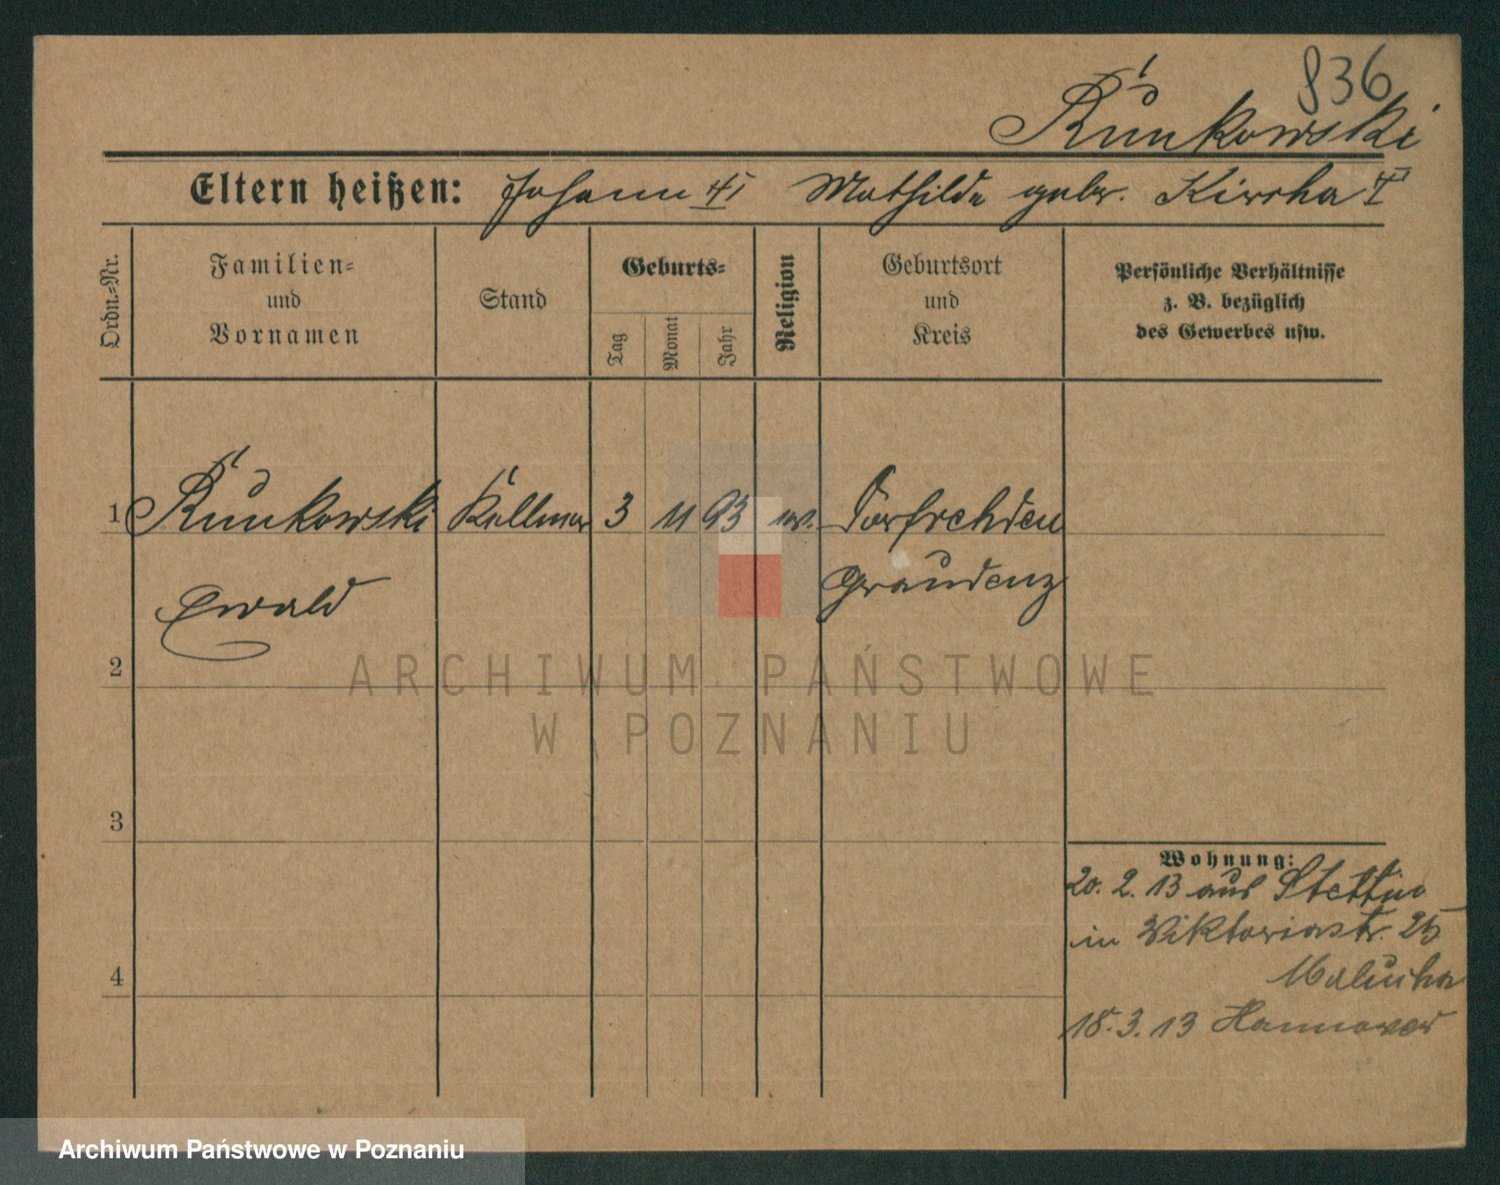 836
Runkowski
Eltern heißen: Johann Mathilde gebr. Kirscha
Ordn.=Nr.
Familien=
und
Vornamen
Stand
Geburts=
Tag
Monat
Jahr
Religion
Geburtsort
und
Kreis
Persönliche Verhältnisse
z. B. bezüglich
des Gewerbes usw.
1 Runkowski Kellner 3 11 93 ev.
Ewald
Graudenz
2
3
4
Wohnung:
20. 2. 13 aus Stettin
in Viktoriastr. 25
18. 3. 13 Hannover
ARCHIWUM PAŃSTWOWE
W POZNANIU
Archiwum Państwowe w Poznaniu